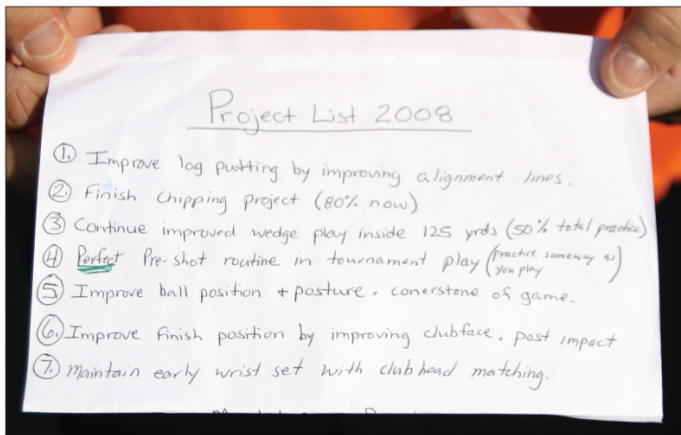 Project List 2008
1. Improve lag putting by improving alignment lines.
2. Finish chipping project (80% now)
3. Continue improved wedge play inside 125 yrds (50% total practice)
4 Perfect Pre-shot routine in tournament play (practice sameway as you play)
5 Improve ball position + posture. conerstone of game.
6. Improve finish position by improving clubface. post impact
7. Maintain early wrist set with club head matching.